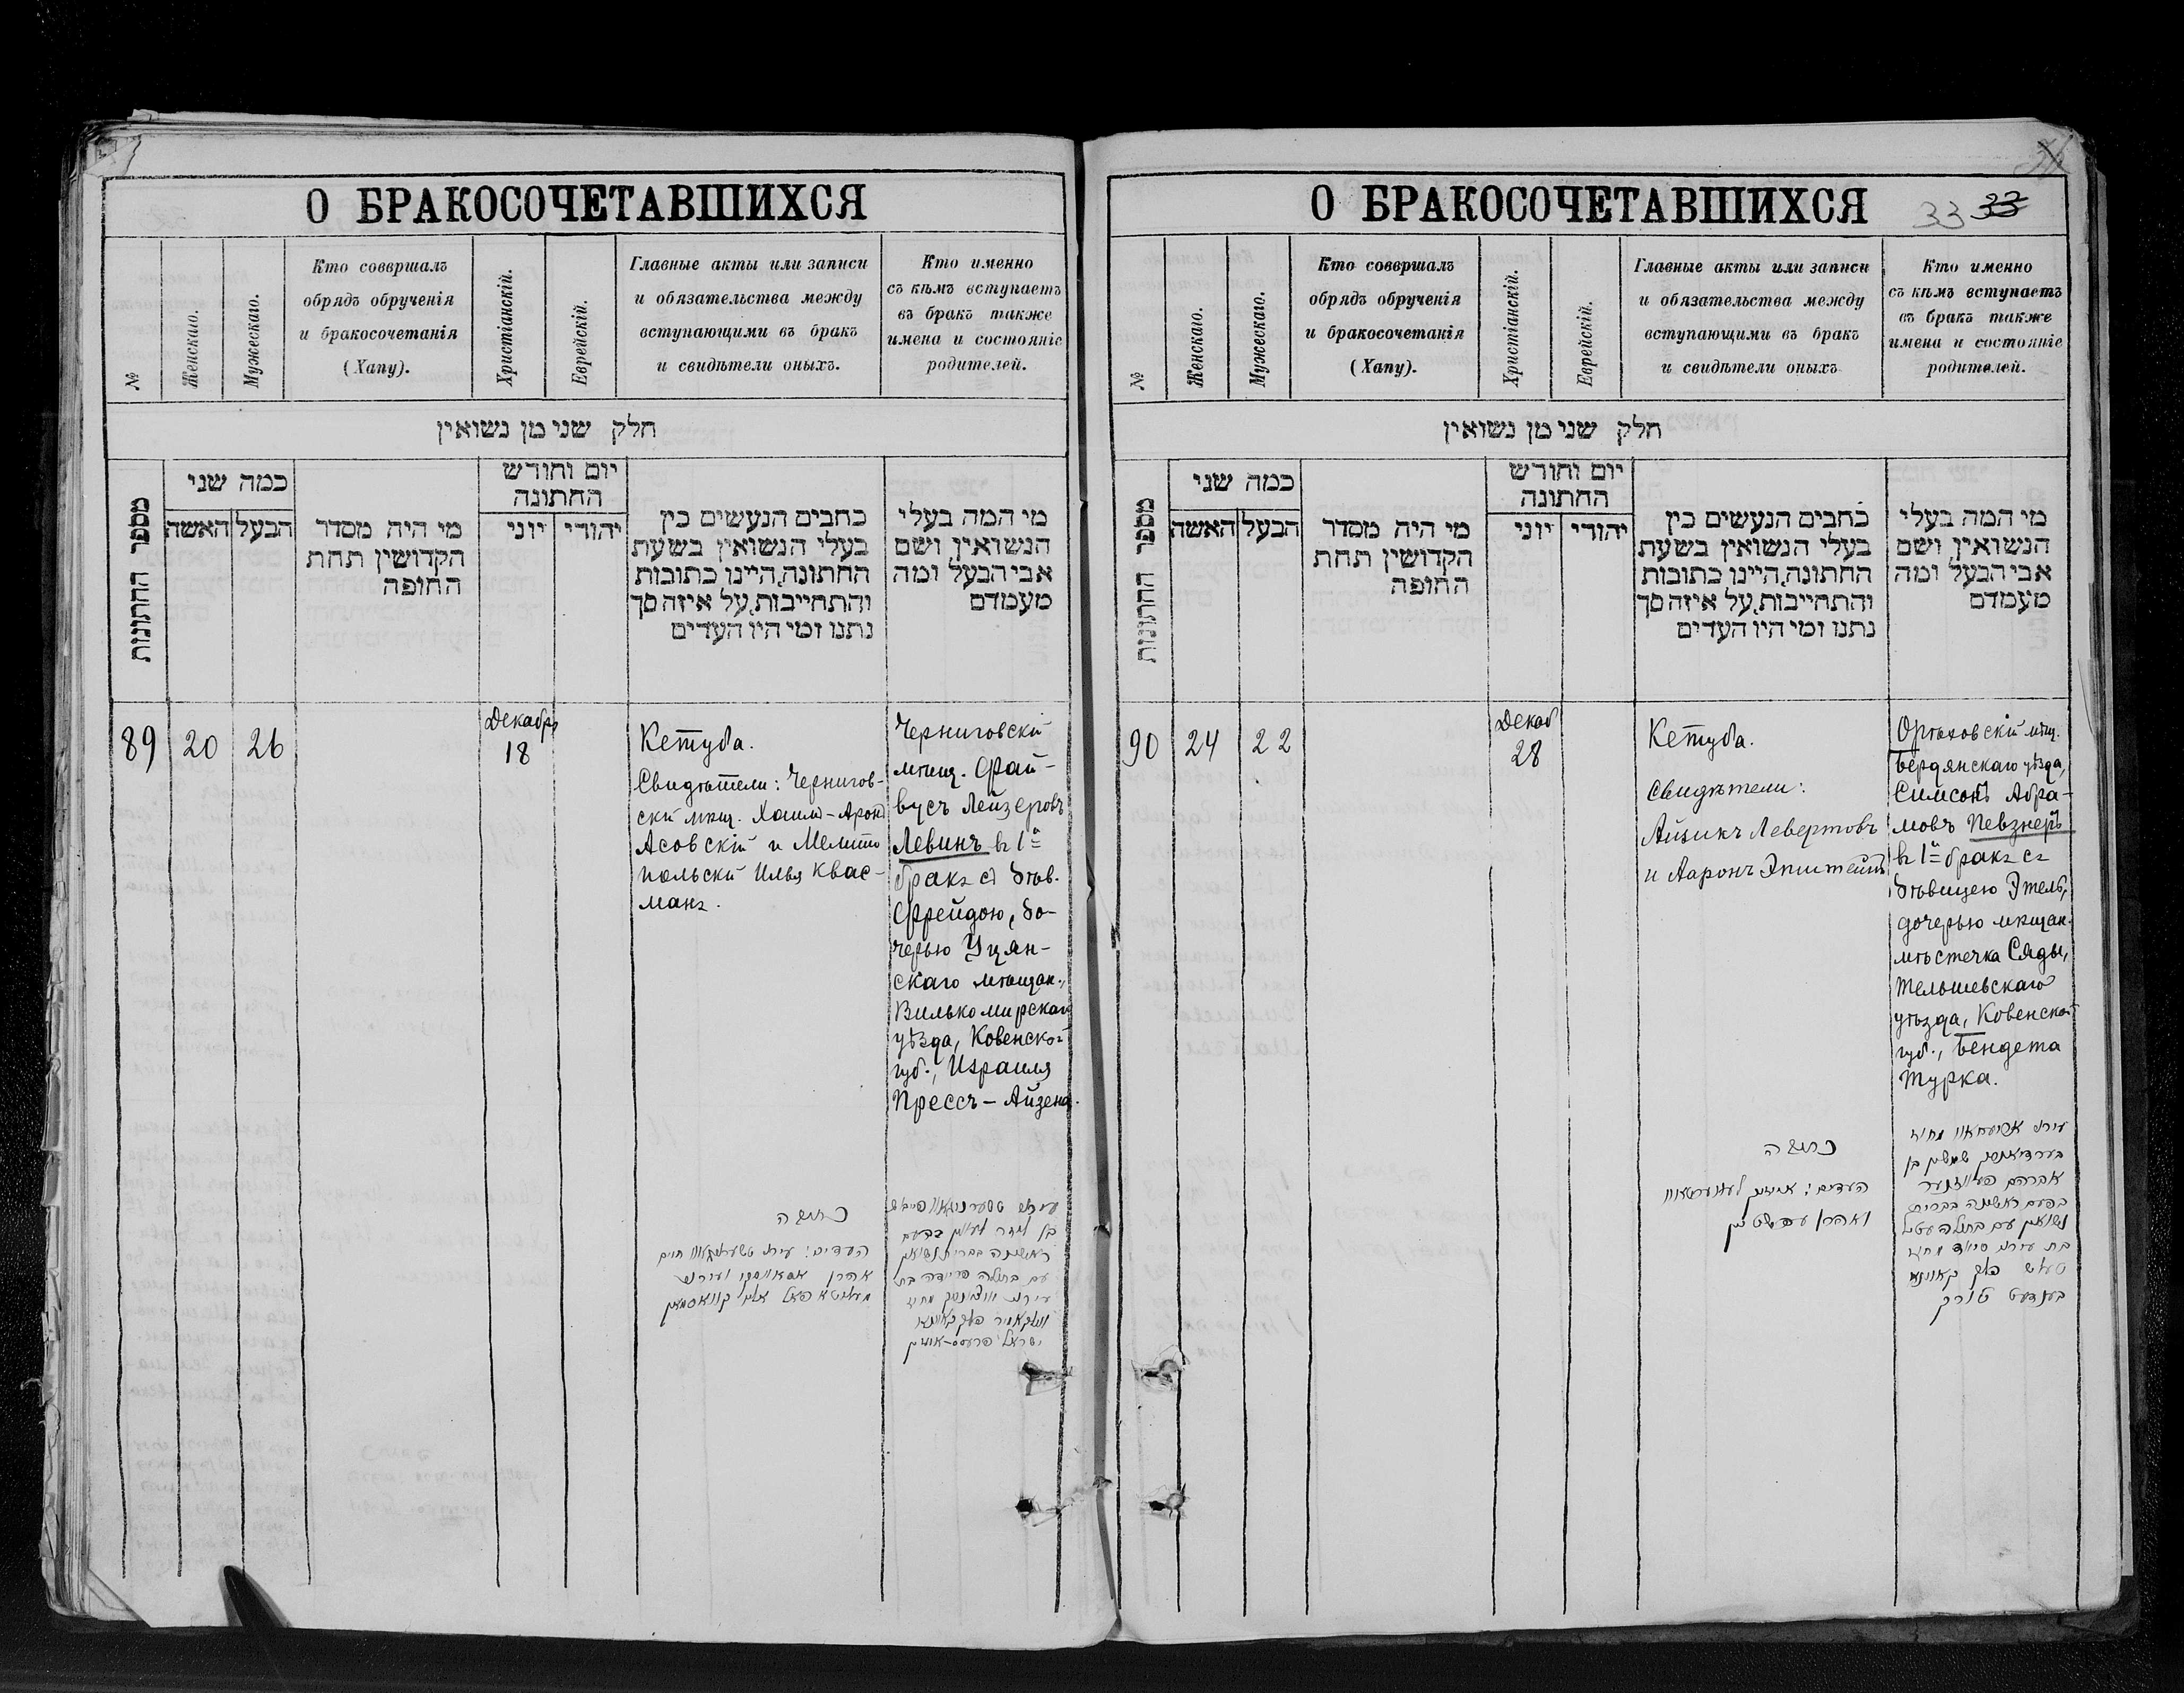 О БРАКОСОЧЕТАВШИХСЯ
№
Женскаго.
Мужескаго.
Кто соввршалъ
обрядъ обрученія
и бракосочетанія
(Хапу).
Христіанскій.
Еврейскій.
Главные акты или записи
и обязательства между
вступающими въ бракъ
и свидѣтели оныхъ.
Кто именно
съ кѣмъ вступаетъ
въ бракъ также
имена и состояніе
родителей.
חלק שני מן נשואין
מספר החתונות
כמה שני
האשה
הבעל
מי היה מסדר
הקדושין תחת
החופה
יום וחודש
החתונה
יוני
יהודי
כתבים הנעשים בין
בעלי הנשואין בשעת
החתונה,היינו כתובות
והתחייבות,על איזה סך
נתנו ומי היו העדים
מי המה בעלי
הנשואין, ושם
אבי הבעל ומה
מעמדם
89
20
26
Декабрь
18
Кетуба.
Свидѣтели: Чернигов-
скій мѣщ. Хаимъ-Аронъ
Асовскій и Мелито
польскій Илья Квас-
манъ.
Черниговскій
мѣщ. Фай-
вусъ Лейзеровъ
Левинъ въ 1й
бракъ съ дѣв.
Фрейдою, до-
черью Уцян-
скаго мѣщан.,
Вилькомирскаго
уѣзда, Ковенской
губ., Израиля
Прессъ-Айзена.
כתובה
העדים: עירוני
חיים
אהרן
О БРАКОСОЧЕТАВШИХСЯ
33 33
№
Женскаго.
Мужескаго.
Кто соввршалъ
обрядъ обрученія
и бракосочетанія
(Хапу).
Христіанскій.
Еврейскій.
Главные акты или записи
и обязательства между
вступающими въ бракъ
и свидѣтели оныхъ
Кто именно
съ кѣмъ вступаетъ
въ бракъ также
имена и состояніе
родителей.
חלק שני מן נשואין
מספר החתונות
כמה שני
האשה
הבעל
מי היה מסדר
הקדושין תחת
החופה
יום וחודש
החתונה
יוני
יהודי
כתבים הנעשים בין
בעלי הנשואין בשעת
החתונה,היינו כתובות
והתחייבות,על איזה סך
נתנו ומי היו העדים
מי המה בעלי
הנשואין, ושם
אבי הבעל ומה
מעמדם
90
24
22
Декаб
28
Кетуба.
Свидѣтели:
Айзикъ Левертовъ
и Ааронъ Эпштейнъ
Орѣховскій мѣщ.
Бердянскаго уѣзда,
Симсонъ Абра-
мовъ Певзнеръ
въ 1й бракъ съ
дѣвицею Этель,
дочерью мѣщан.
мѣстечка Сяды,
Тельшевскаго
уѣзда, Ковенской
губ., Бендета
Турка.
כתובה
העדים: אייזיק
ואהרן עפשטיין
בן
אברהם פעווזנער
בפעם ראשונה בברית
נשואין עם בתולה עטיל
בת עירוני
פלך קאוונא
בענדעט טורק